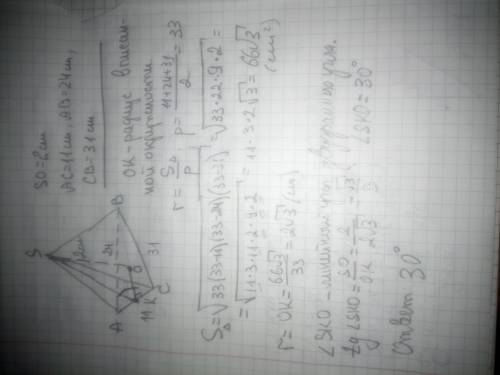 SO=2см
AC=11см, AB=24см,
CB=31см
OK-радиус вписан-
ной окружности.
r = S∆/p, p = (11+24+31)/2 = 33
S∆ = √33(33-11)(33-24)(33-31) = √33·22·9·2 =
= √11·3·11·2·9·2 = 11·3·2√3 = 66√3 (см²)
r = OK = 66√3/33 = 2√3 (см)
∠SKO - линейный угол двугранного угла.
tg∠SKO = SO/OK = 2/2√3 = √3/3, ∠SKO = 30°
Ответ 30°
S
2см
24
B
A
O
31
11
K
C